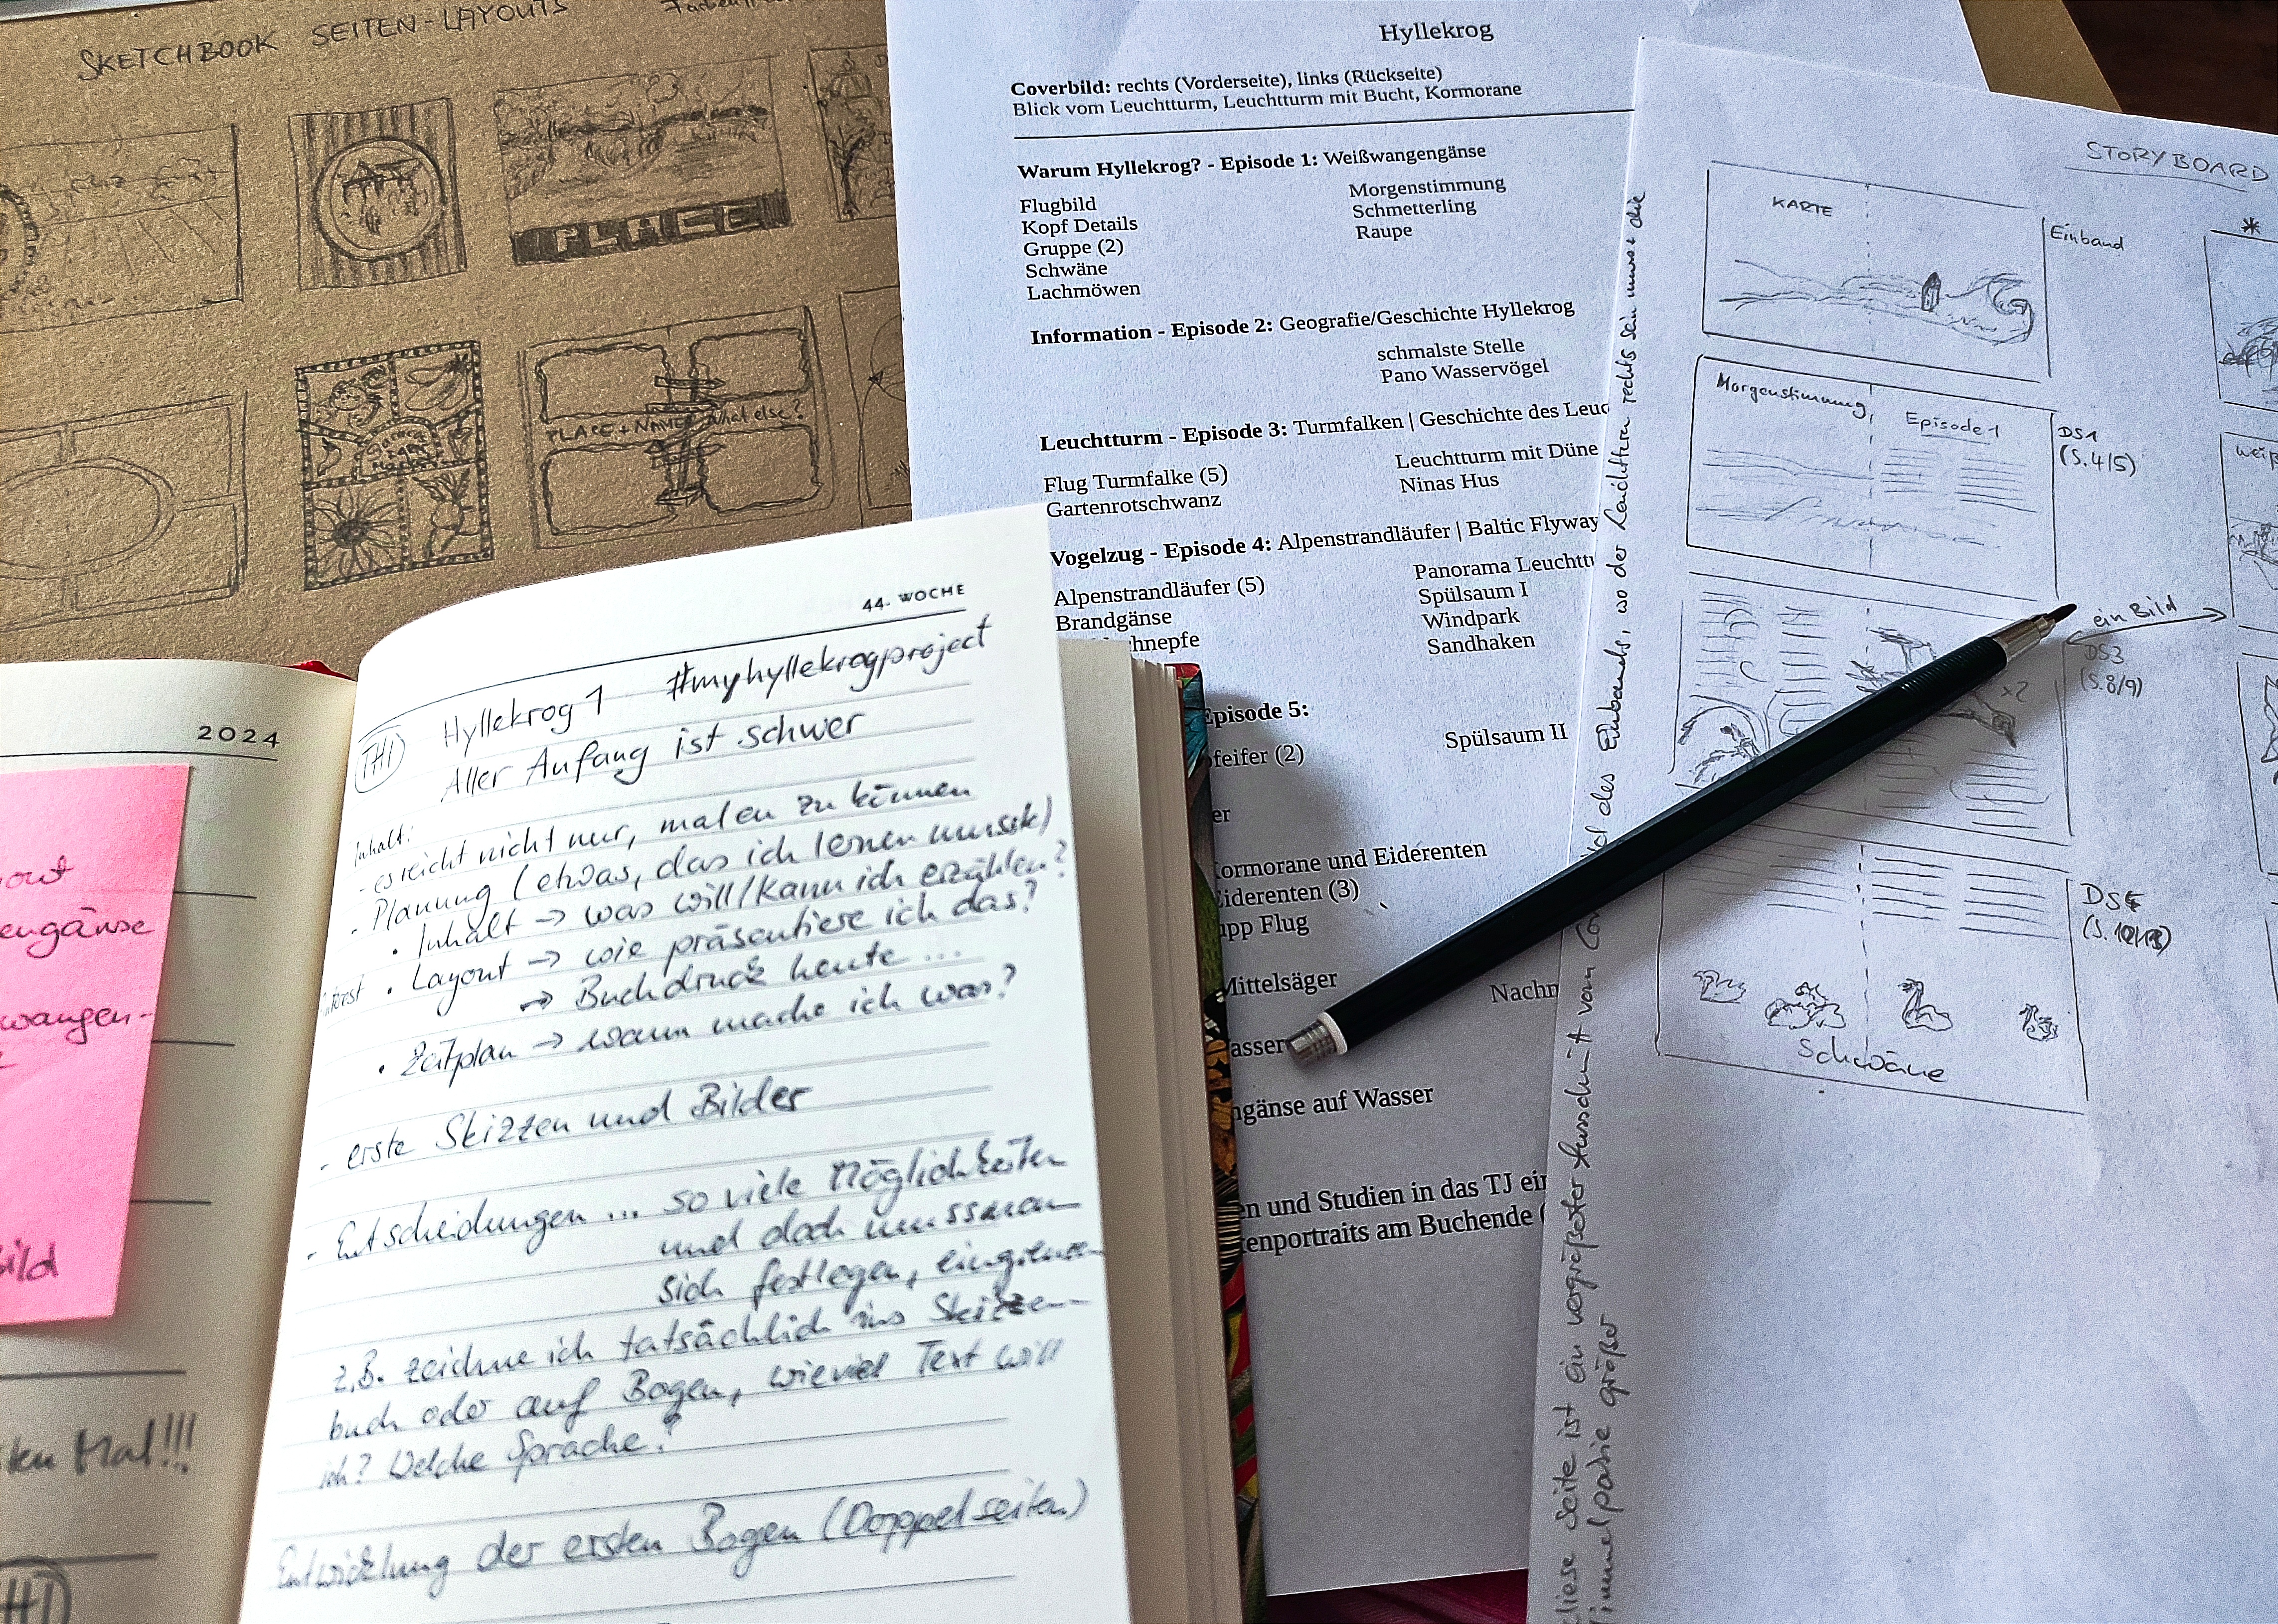 SKETCHBOOK SEITEN-LAYOUTS
PLACE
PLACE + NAME
What else?
Hyllekrog
Coverbild: rechts (Vorderseite), links (Rückseite)
Blick vom Leuchtturm, Leuchtturm mit Bucht, Kormorane
Warum Hyllekrog? - Episode 1: Weißwangengänse
Flugbild
Kopf Details
Gruppe (2)
Schwäne
Lachmöwen
Morgenstimmung
Schmetterling
Raupe
Information - Episode 2: Geografie/Geschichte Hyllekrog
schmalste Stelle
Pano Wasservögel
Leuchtturm - Episode 3: Turmfalken | Geschichte des Leuc
Flug Turmfalke (5)
Gartenrotschwanz
Leuchtturm mit Düne
Ninas Hus
Vogelzug - Episode 4: Alpenstrandläufer | Baltic Flyway
Alpenstrandläufer (5)
Brandgänse
hnepfe
Panorama Leuchttu
Spülsaum I
Windpark
Sandhaken
Episode 5:
feifer (2)
Spülsaum II
er
ormorane und Eiderenten
Eiderenten (3)
upp Flug
Mittelsäger
Nachm
asser
ngänse auf Wasser
en und Studien in das TJ ein
enportraits am Buchende (
STORYBOARD
KARTE
Einband
Morgenstimmung, Episode 1
DS1
(S.4/5)
ein Bild
DS3
(S.8/9)
x2
Schwäne
diese Seite ist ein vergrößerter Ausschnitt von des Einbands, wo der Leuchtturm rechts sein muss + die
größer
2024
out
engänse
wangen-
ild
ken Mal!!!
44. WOCHE
Hyllekrog 1 #myhyllekrogproject
Aller Anfang ist schwer
Inhalt:
- es reicht nicht nur, malen zu können
- Planung (etwas, das ich lernen musste)
• Inhalt → was will/kann ich erzählen?
• Layout → wie präsentiere ich das?
→ Buchdruck heute ...
• Zeitplan → wann mache ich was?
- erste Skizzen und Bilder
- Entscheidungen ... so viele Möglichkeiten
und doch muss man
sich festlegen, eingrenzen
z.B. zeichne ich tatsächlich ins Skizzen-
buch oder auf Bogen, wieviel Text will
ich? Welche Sprache?
Entwicklung der ersten Bogen (Doppelseiten)